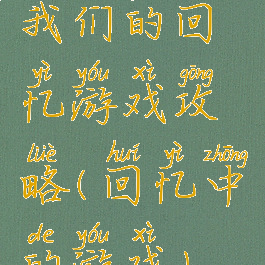 我们的回
yì yóu xì gōng
忆游戏攻
lüè huí yì zhōng
略(回忆中
de yóu xì
的游戏)